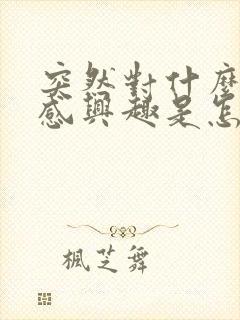 突然對什麼
感興趣是怎
楓芝舞